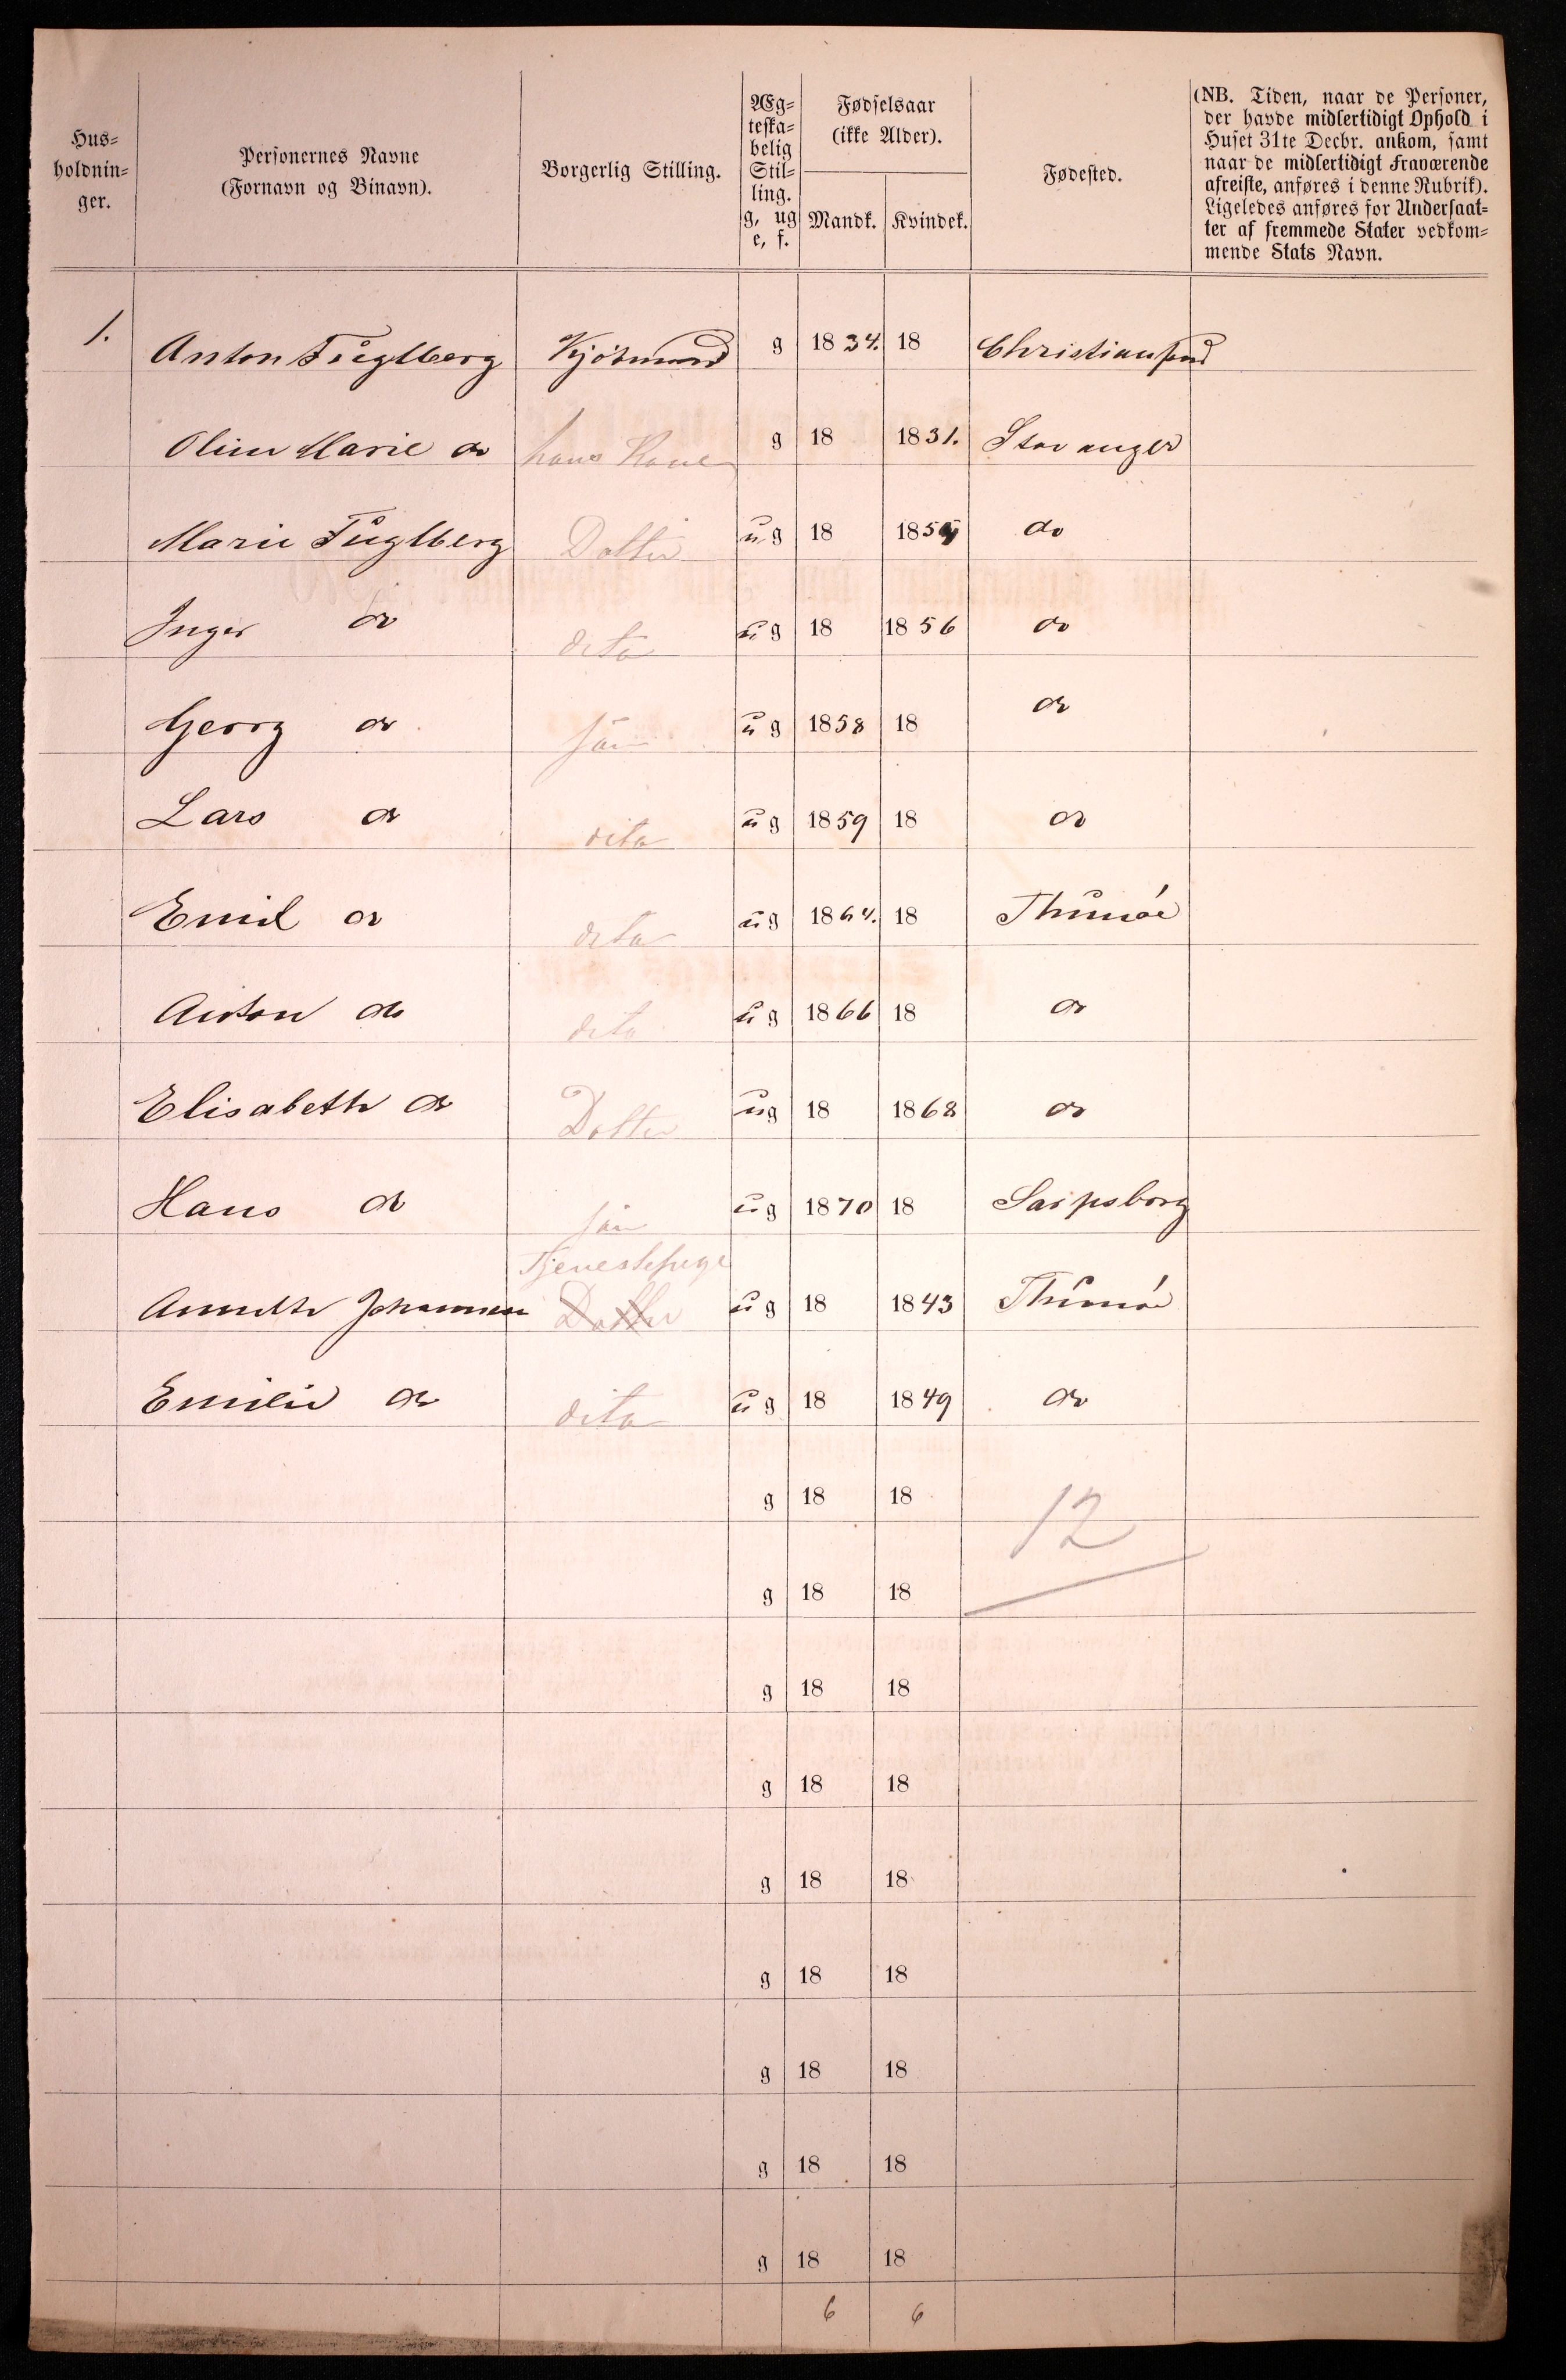 Hus-
holdnin-
ger.
Personernes Navne
(Fornavn og Binavn).
Borgerlig Stilling.
Æg-
teska-
belig
Stil-
ling.
g, ug
e, f.
Fødselsaar
(ikke Alder).
Mandk. Kvindek.
Fødested.
(NB. Tiden, naar de Personer,
der havde midlertidigt Ophold i
Huset 31te Decbr. ankom, samt
naar de midlertidigt Fraværende
afreiste, anføres i denne Rubrik).
Ligeledes anføres for Undersaat-
ter af fremmede Stater vedkom-
mende Stats Navn.
1. Anton Fuglberg Kjøbmand g 1834. 18 Christiansund
Oline Marie do hans Kone g 18 1831. Stavanger
Marie Fuglberg Datter ug 18 185 do
Inger do dito ug 18 1856 do
Georg do søn ug 1858 18 do
Lars do dito ug 1859 18 do
Emil do dito ug 1864. 18 Thunøe
Anton do dito ug 1866 18 do
Elisabeth do Datter ug 18 1868 do
Hans do søn ug 1870 18 Sarpsborg
Tjenestepige
Annethe Johannesen Datter ug 18 1843 Thunøe
Emilie do dito ug 18 1849 do
g 18 18
12
g 18 18
g 18 18
g 18 18
g 18 18
g 18 18
g 18 18
g 18 18
g 18 18
6 6